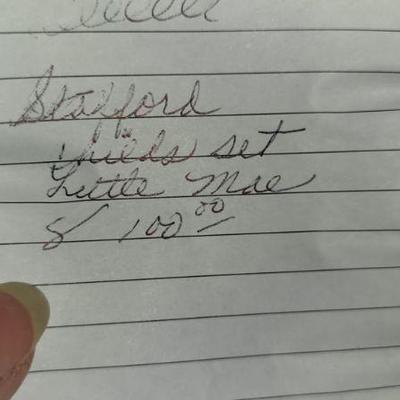 Stafford
childs set
Little Mae
100.00